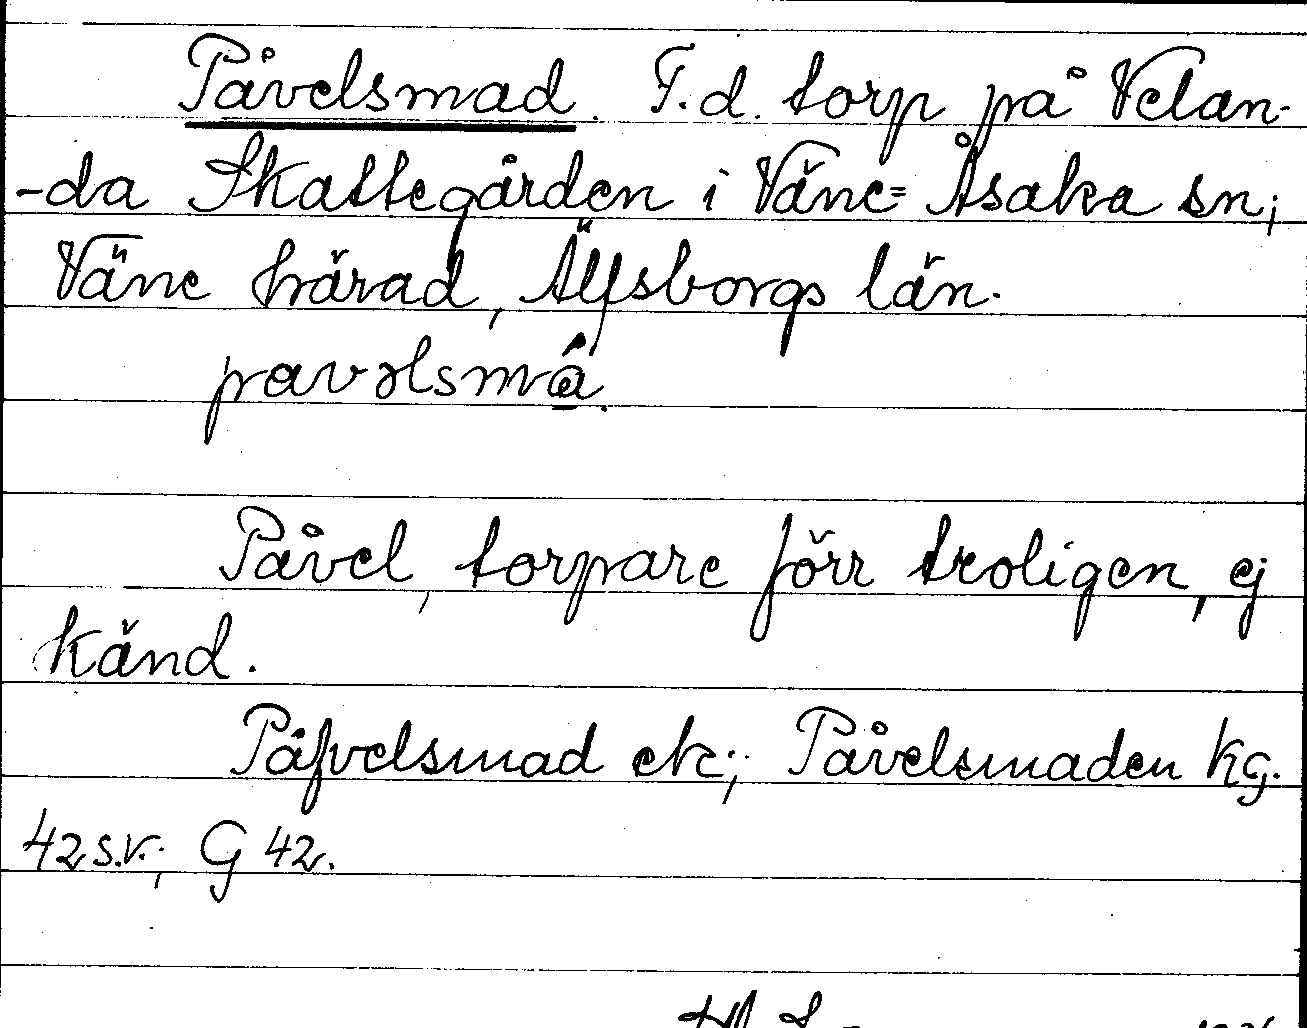 Påvelsmad. F.d. torp på Velan-
-da Skattegården i Väne=Åsaka sn;
Väne härad, Älfsborgs län.
pavəlsmâ.
Påvel, torpare förr troligen, ej
känd.
Påfvelsmad ek; Påvelsmaden kg.
42 s.v.; G 42.